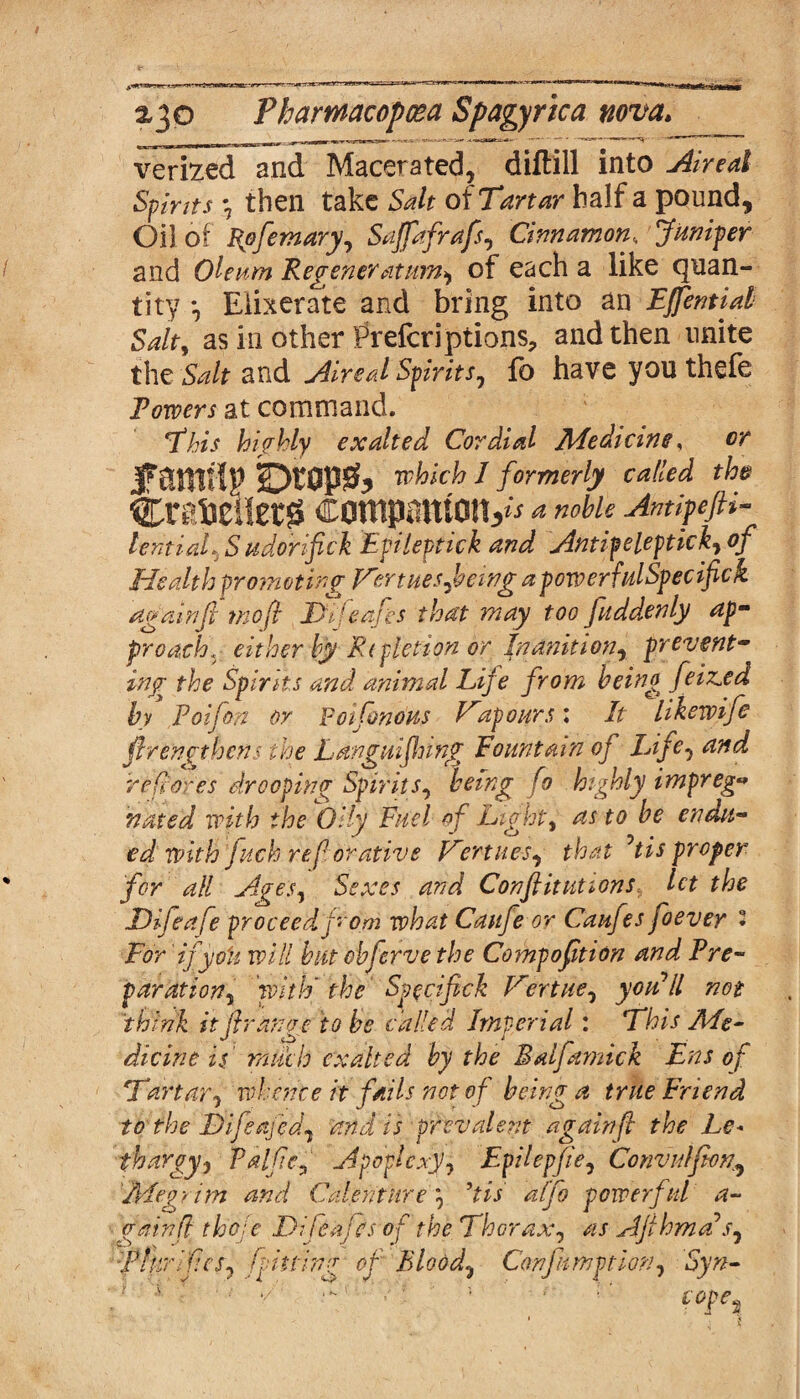 230 Pharmacopœa Spagyrica nova.
verized and Macerated, diſtill into Aireal
Spirits ; then take Salt of Tartar half a pound,
Oil of Roſemary, Saſſafraſs, Cinnamon, Juniper
and Oleum Regeneratum, of each a like quan-
tity ; Elixerate and bring into an Eſſential
Salt, as in other Preſcriptions, and then unite
the Salt and Aireal Spirits, ſo have you theſe
Powers at command.
This highly exalted Cordial Medicine, or
Family Drops, which I formerly called the
Travellers Companion, is a noble Antipeſti-
lential, Sudorifick Epileptick and Antipeleptick, of
Health promoting Vertues, being a powerful Specifick
againſt moſt Diſeaſes that may too ſuddenly ap-
proach, either by Repletion or Inanition, prevent-
ing the Spirits and animal Life from being ſeized
by Poiſon or Poiſonous Vapours : It likewiſe
ſtrengthens the Languiſhing Fountain of Life, and
reſtores drooping Spirits, being ſo highly impreg-
nated with the Oily Fuel of Light, as to be endu-
ed with ſuch reſtorative Vertues, that ’tis proper
for all Ages, Sexes and Conſtitutions, let the
Diſeaſe proceed from what Cauſe or Cauſes ſoever :
For if you will but obſerve the Compoſition and Pre-
paration, with the Specifick Vertue, you’ll not
think it ſtrange to be called Imperial : This Me-
dicine is much exalted by the Balſamick Ens of
Tartar, whence it fails not of being a true Friend
to the Diſeaſed, and is prevalent againſt the Le-
thargy, Palſie, Apoplexy, Epilepſie, Convulſion,
Megrim and Calenture ; ’tis alſo powerful a-
gainſt thoſe Diſeaſes of the Thorax, as Aſthma’s,
Plurifies, ſpitting of Blood, Conſumption, Syn-
cope,